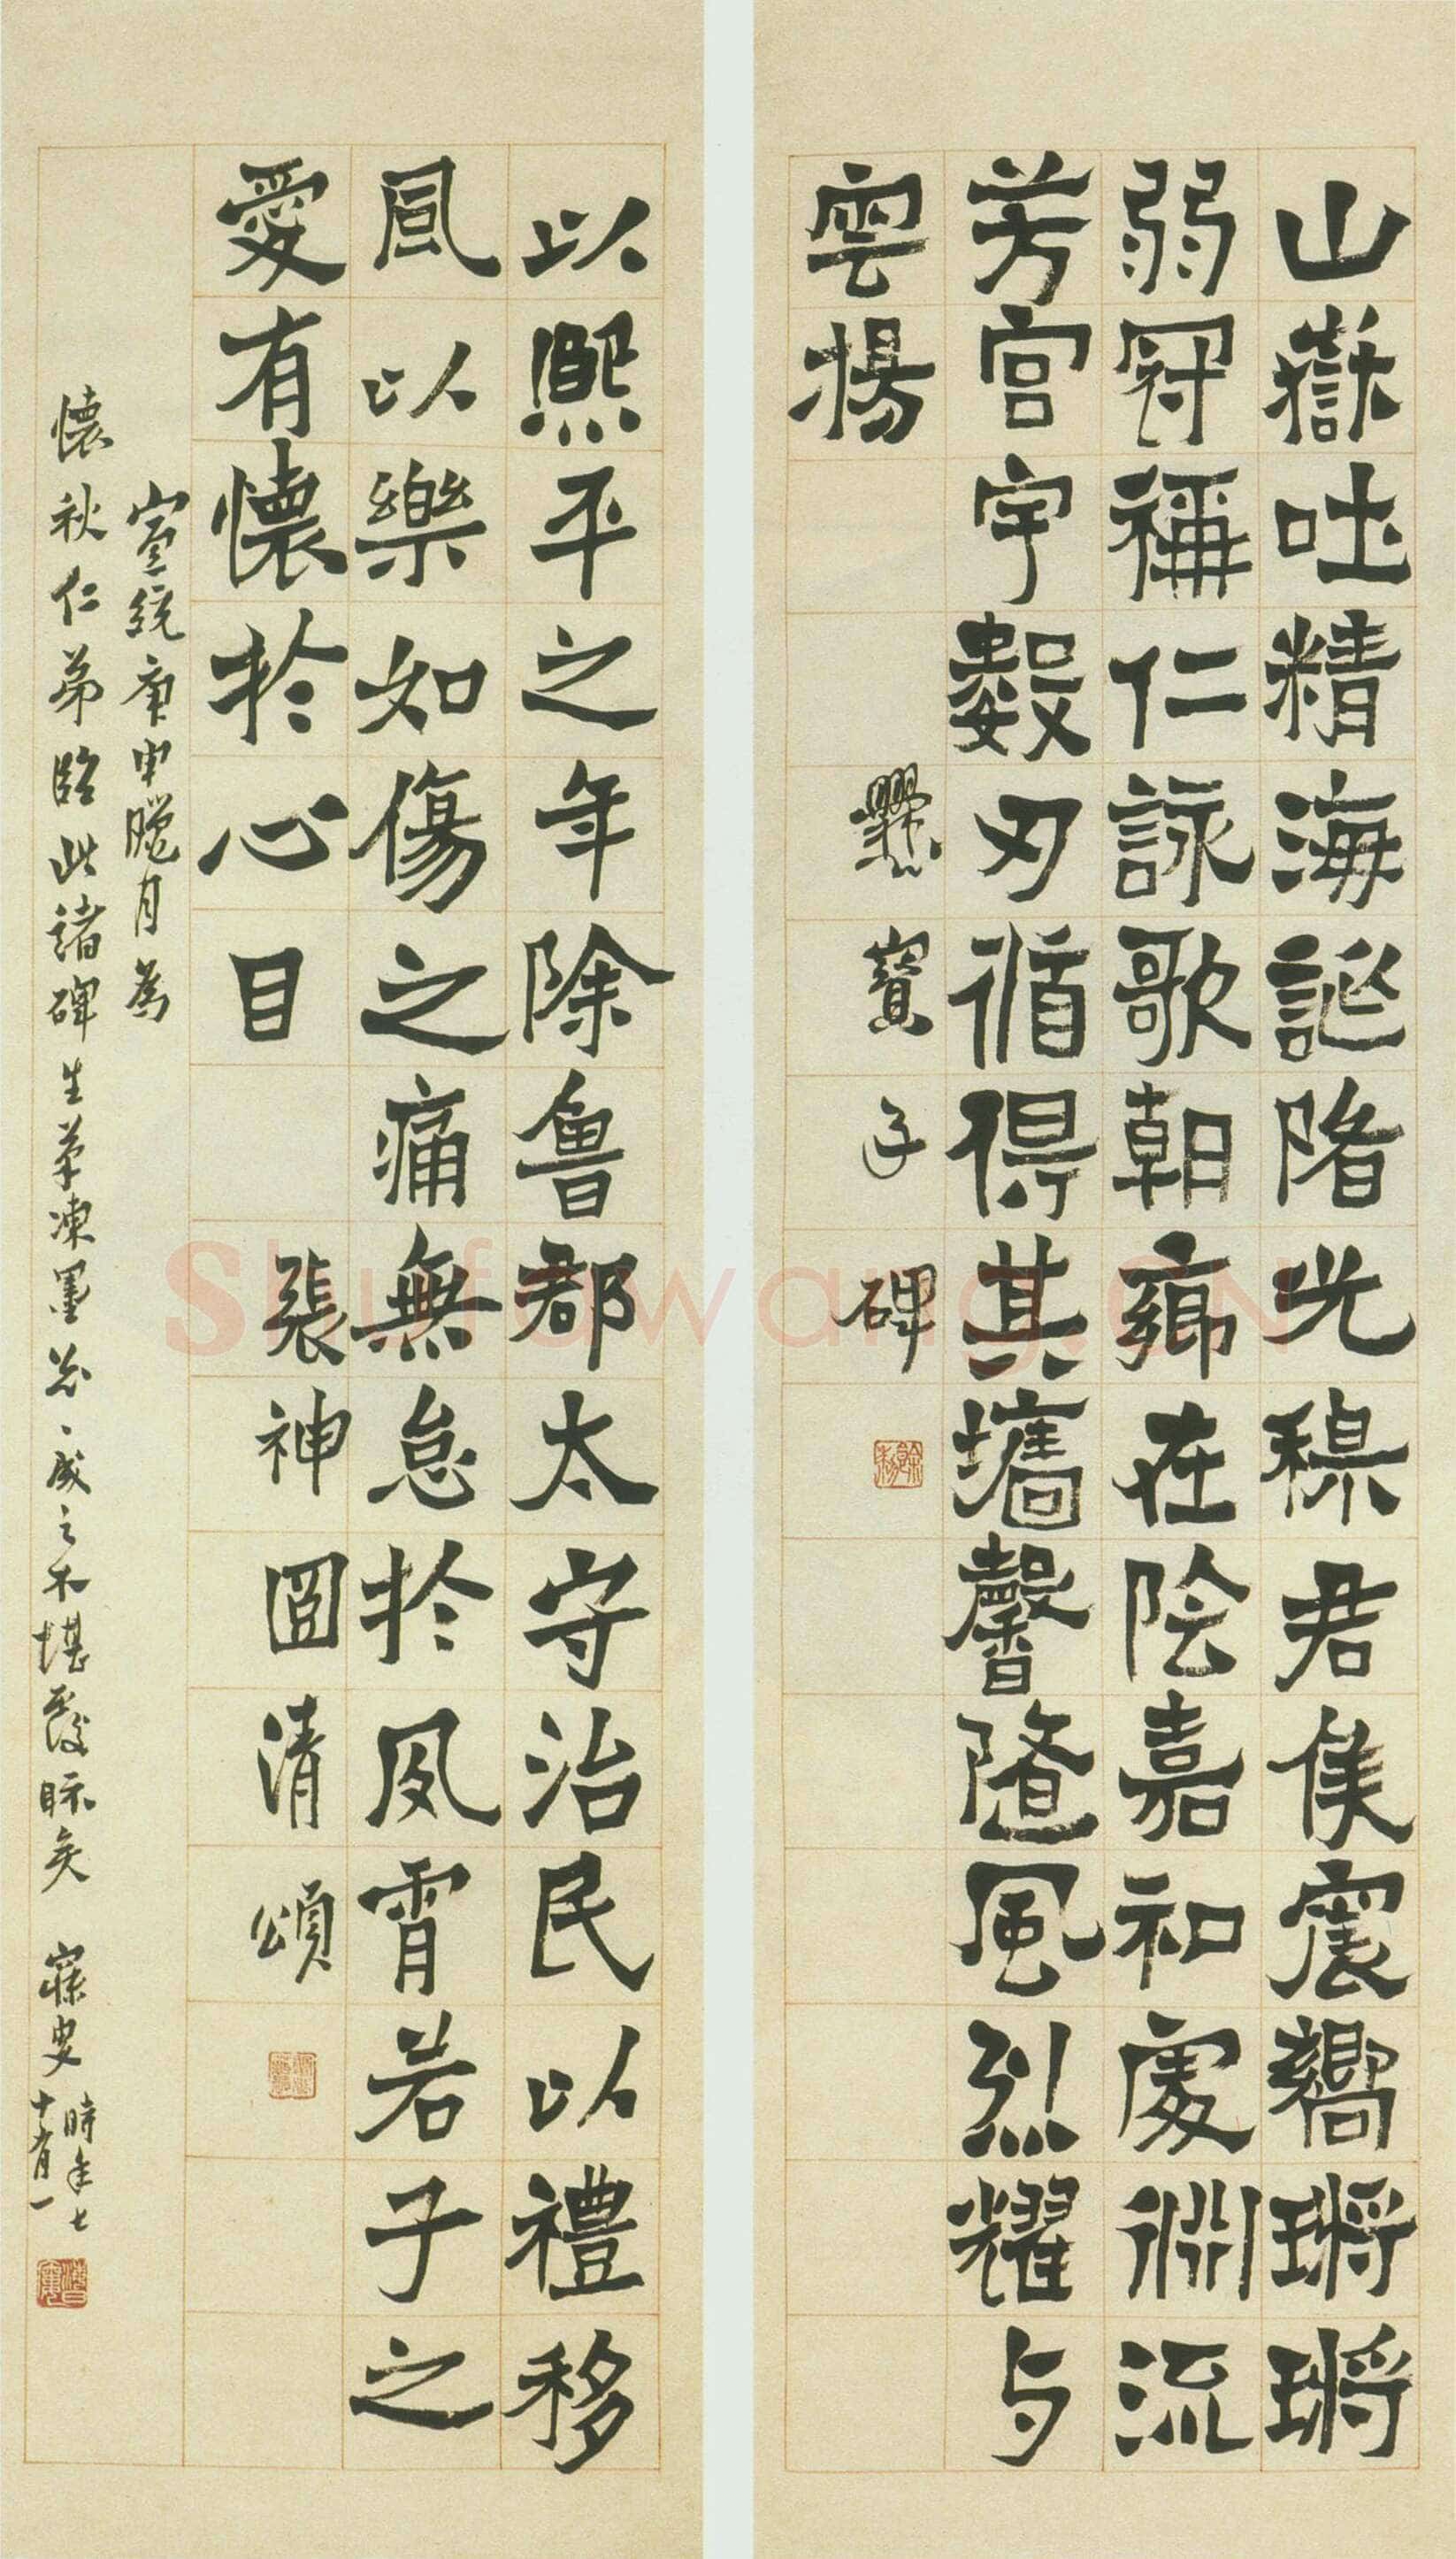 山嶽吐精海誕陏光穆君侯震響鏘鏘
弱冠稱仁詠歌朝鄉在陰嘉和處淵流
芳宮宇數刃循得其墻馨隨風烈耀与
雲揚
爨寶子碑
以熙平之年除魯郡太守治民以禮移
風以樂如傷之痛無怠於夙宵若子之
愛有懷於心目
張神囧清頌
宣統庚申臘月為
懷秋仁弟臨此諸碑
凍墨
成之不堪覆眎矣 寐叟
時年七
十有一
Shufawang.CN